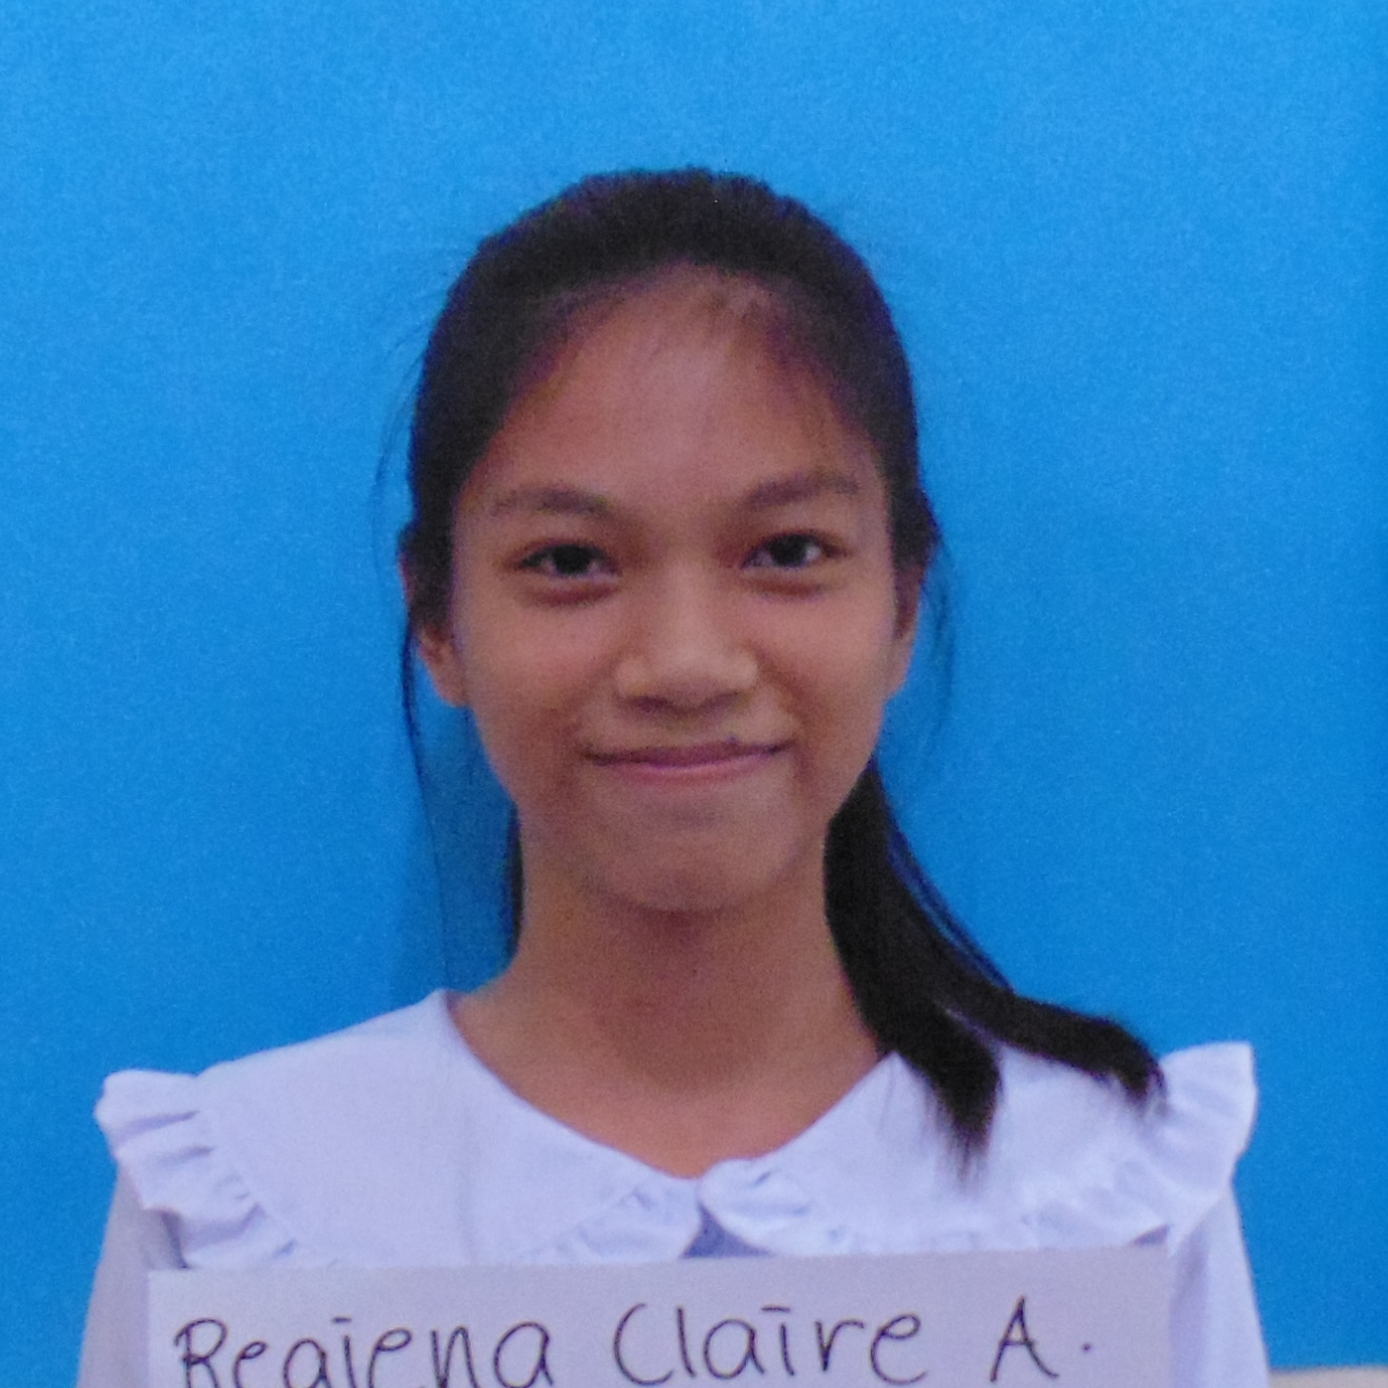 Regiena Claire A.